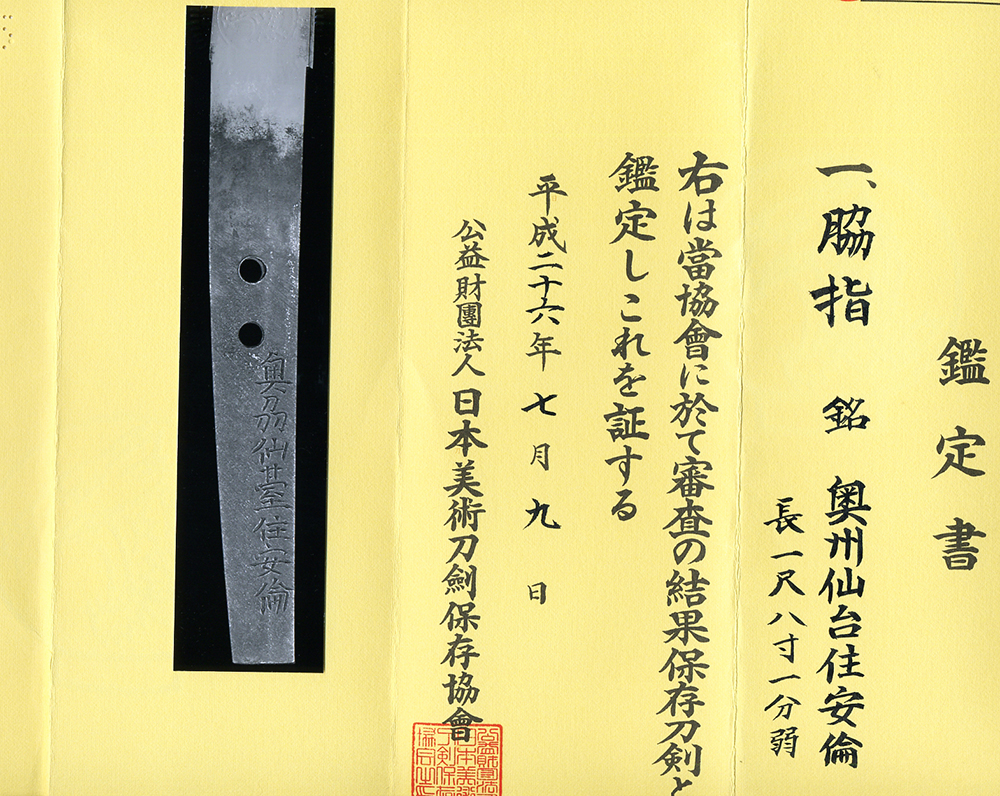 鑑定書
一、脇指 銘 奥州仙台住安倫
長一尺八寸一分弱
右は當協會に於て審査の結果保存刀剣と
鑑定しこれを証する
平成二十六年七月九日
公益財團法人日本美術刀劍保存協會
奥刕仙䑓住安倫